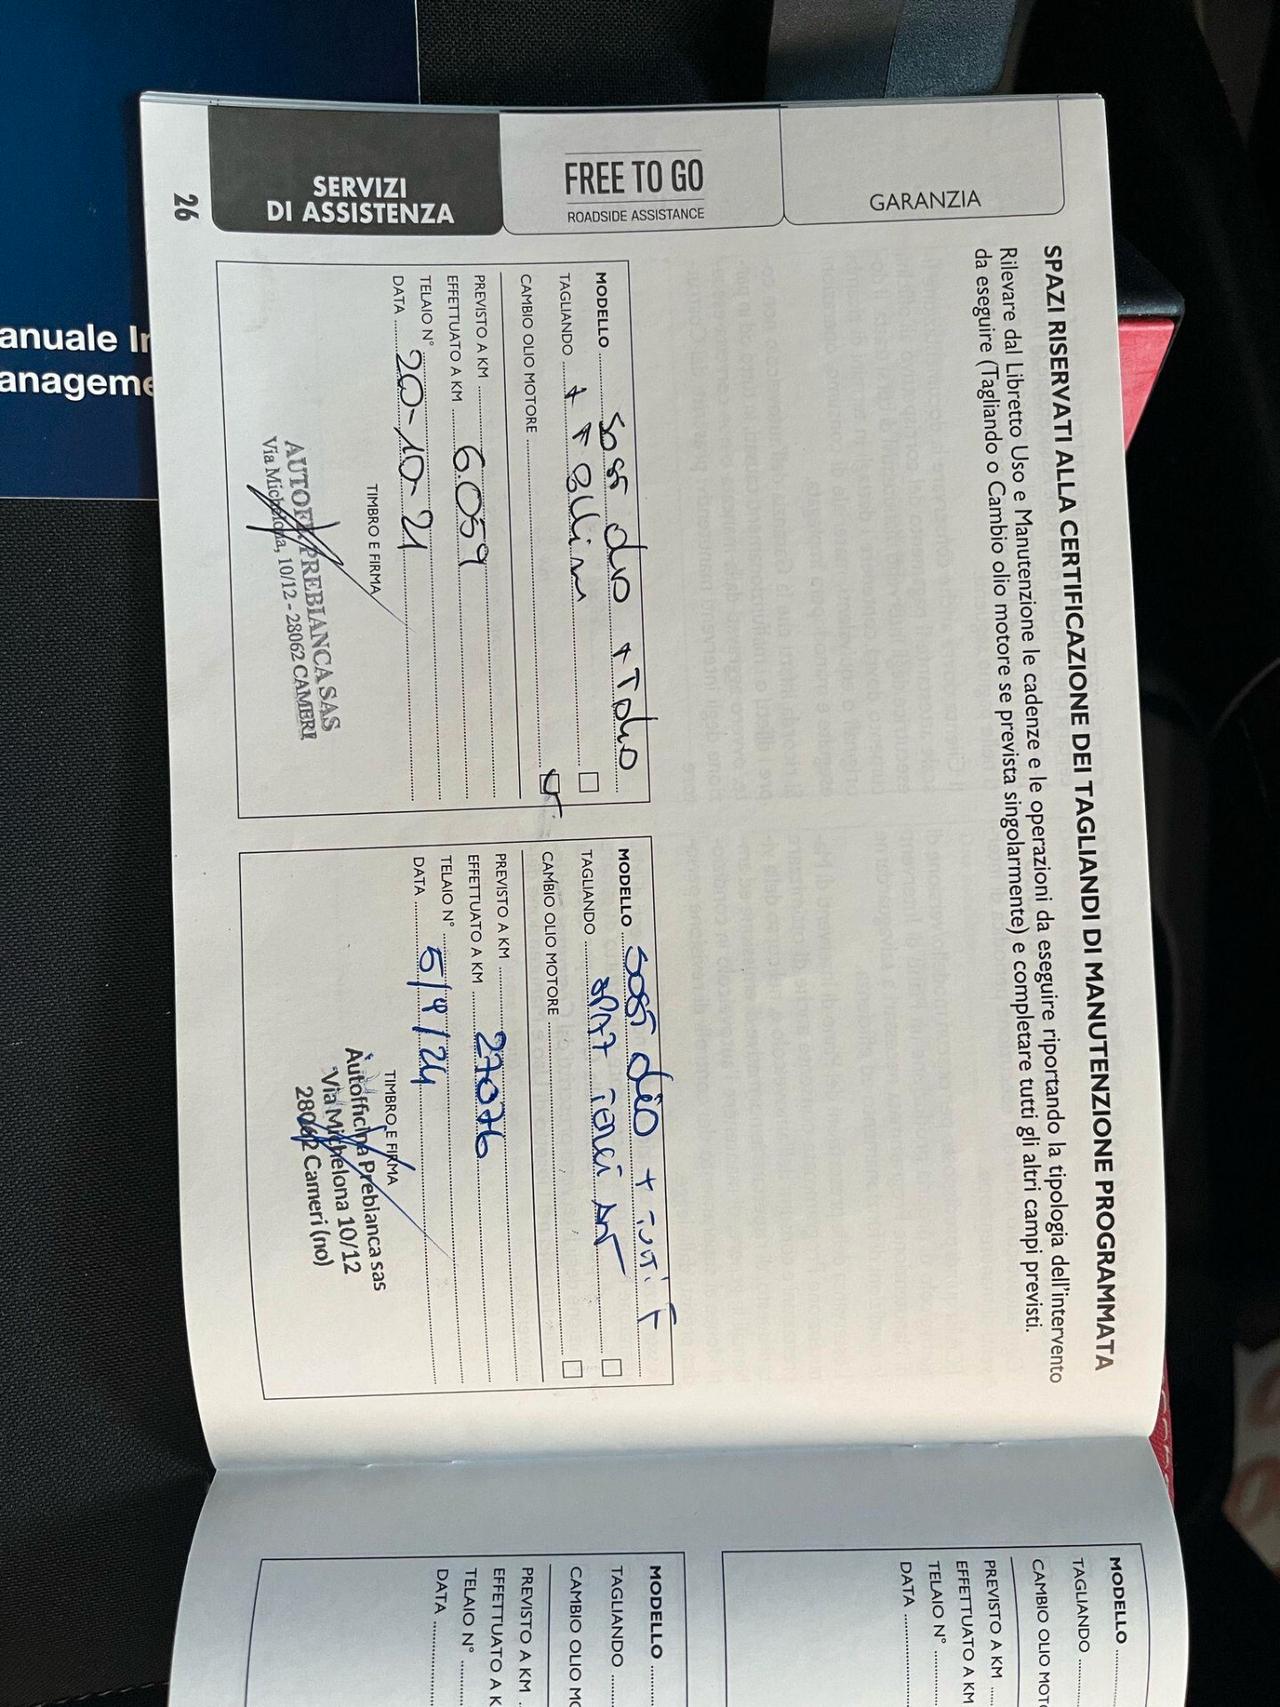 GARANZIA
FREE TO GO
ROADSIDE ASSISTANCE
SERVIZI
DI ASSISTENZA
26
SPAZI RISERVATI ALLA CERTIFICAZIONE DEI TAGLIANDI DI MANUTENZIONE PROGRAMMATA
Rilevare dal Libretto Uso e Manutenzione le cadenze e le operazioni da eseguire riportando la tipologia dell'intervento
da eseguire (Tagliando o Cambio olio motore se prevista singolarmente) e completare tutti gli altri campi previsti.
MODELLO Sost olio + F olio
TAGLIANDO +
CAMBIO OLIO MOTORE
PREVISTO A KM
EFFETTUATO A KM 6.059
TELAIO N°
DATA 20-10-21
TIMBRO E FIRMA
AUTOFF. PREBIANCA SAS
Via Michelona, 10/12 - 28062 CAMERI
MODELLO Sost olio + tutti F
TAGLIANDO
CAMBIO OLIO MOTORE
PREVISTO A KM
EFFETTUATO A KM 27076
TELAIO N°
DATA 5/9/24
TIMBRO E FIRMA
Autofficina Prebianca sas
Via Michelona 10/12
28062 Cameri (no)
MODELLO
TAGLIANDO
CAMBIO OLIO MOT
PREVISTO A KM
EFFETTUATO A KM
TELAIO N°
DATA
MODELLO
TAGLIANDO
CAMBIO OLIO MO
PREVISTO A KM
EFFETTUATO A K
TELAIO N°
DATA
anuale In
anageme